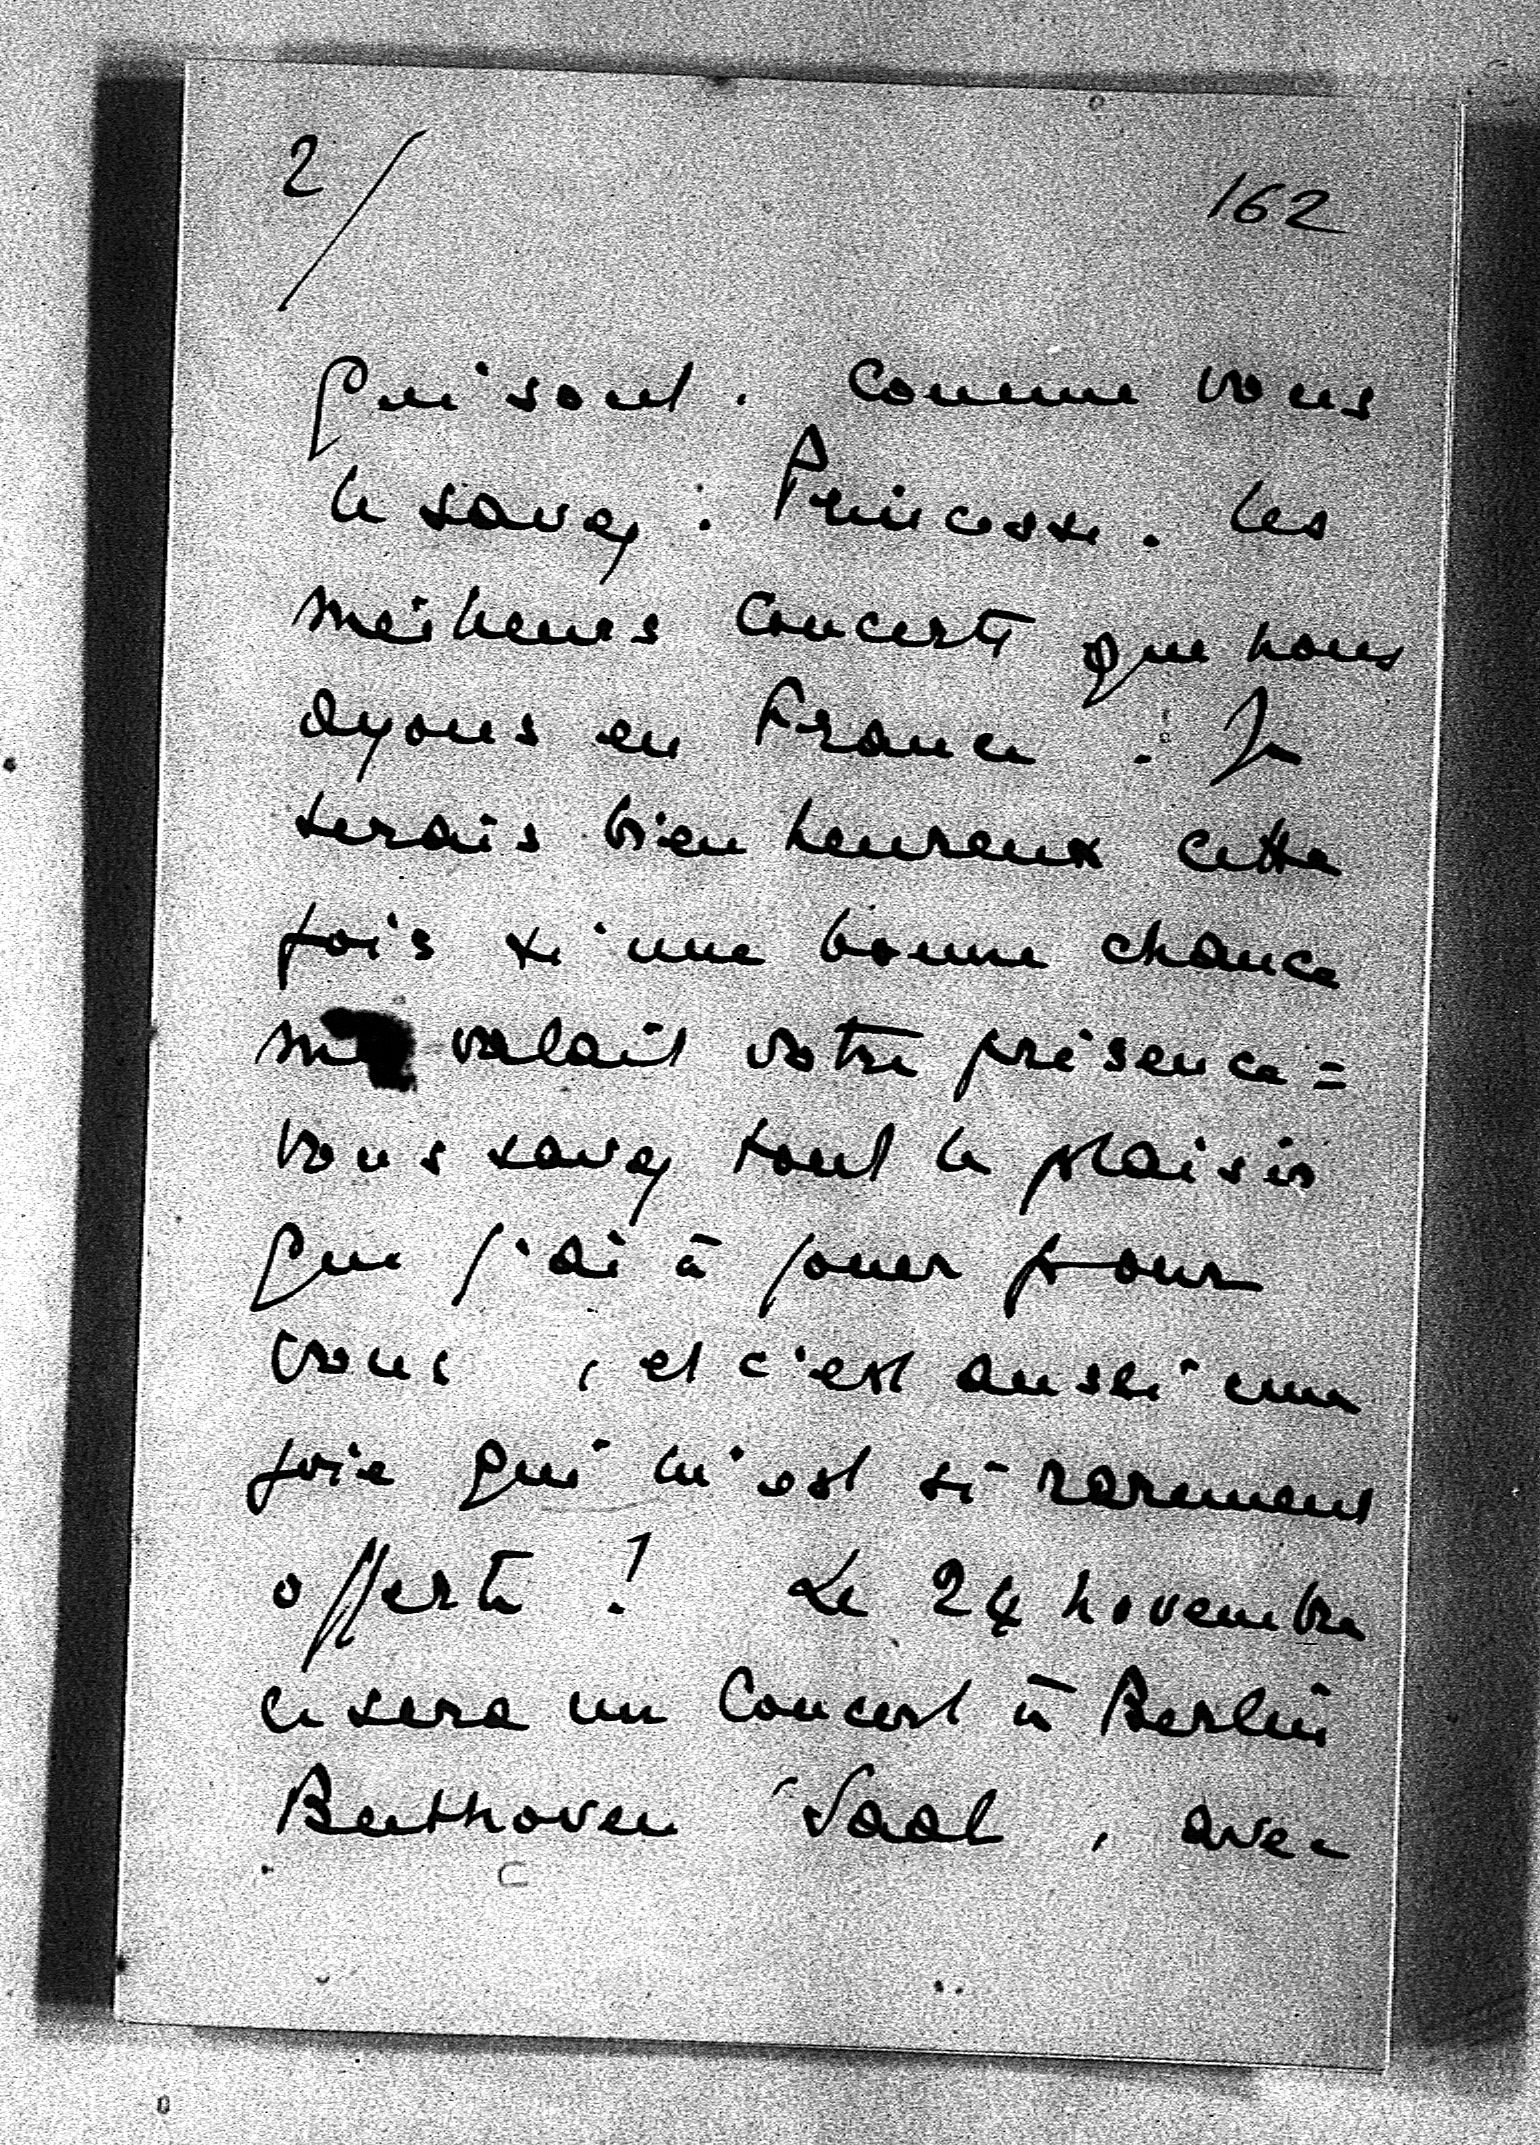 2/
162
qui sont. comme vous
le savez. Princesse. les
meilleurs concerts que nous
ayons en France. Je
serais bien heureux cette
fois si une bonne chance
me valait votre présence =
vous savez tout le plaisir
que j'ai à jouer pour
vous, et c'est aussi une
joie qui m'est si rarement
offerte ! Le 24 novembre
ce sera un Concert à Berlin
Beethoven Saal, avec